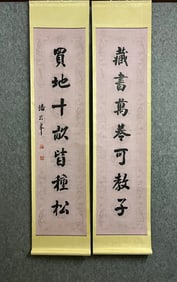 藏書萬卷可教子
買地十畝皆種松